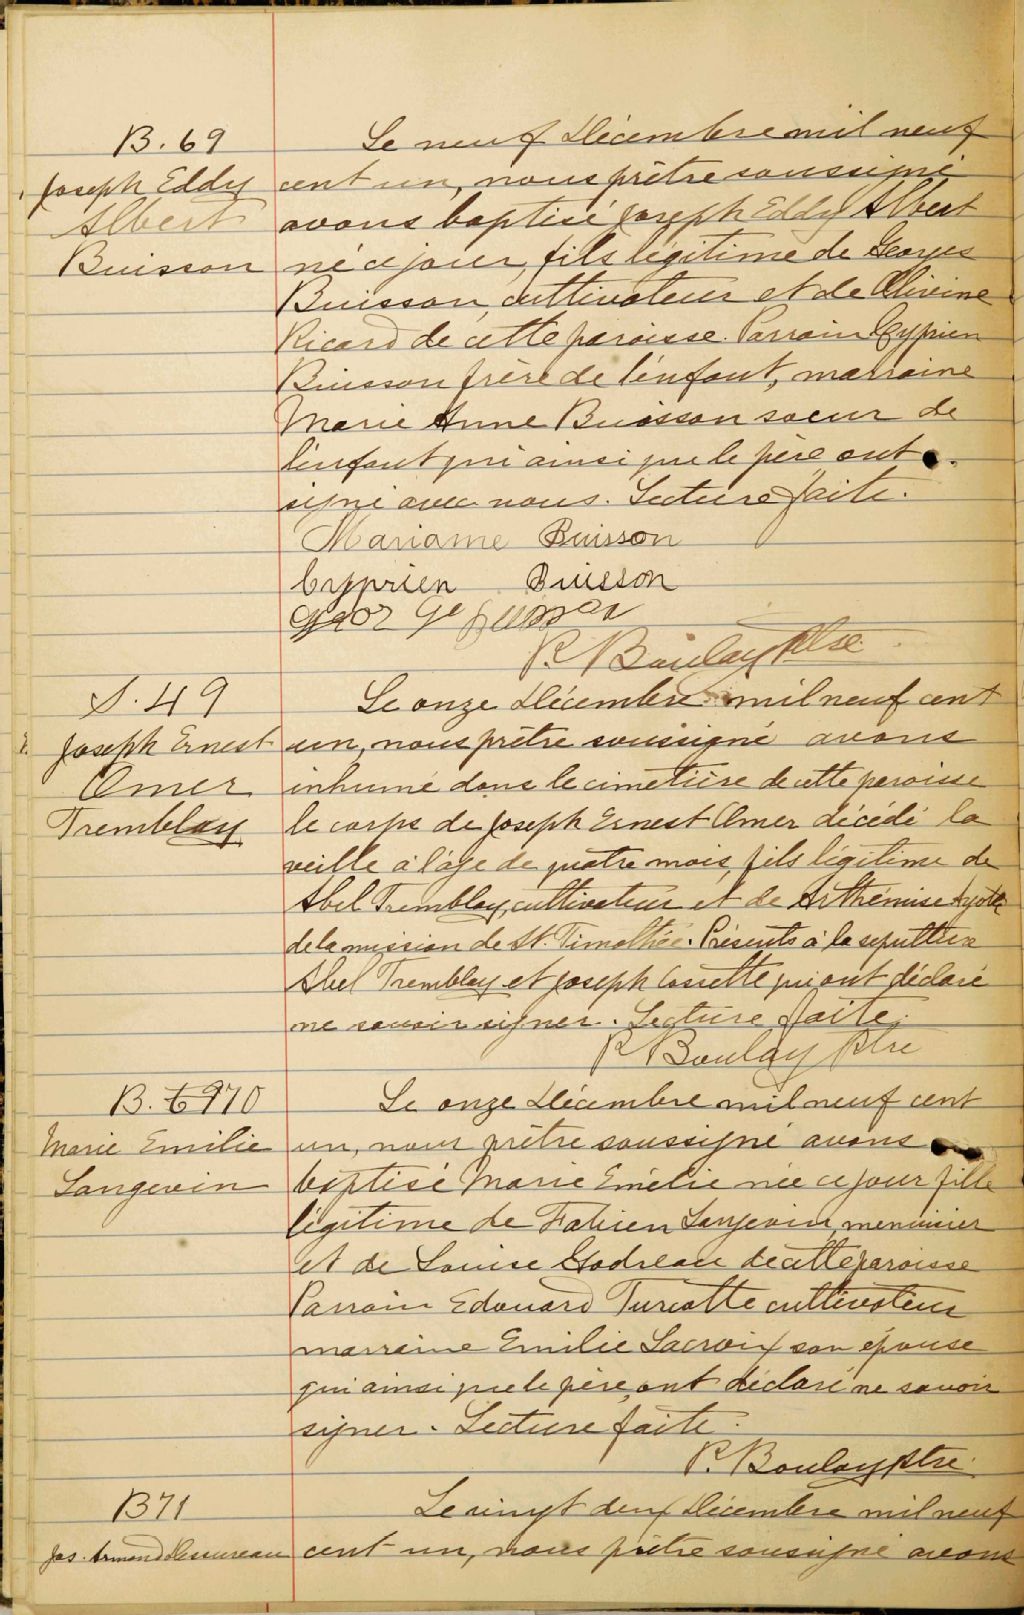 B. 69
Joseph Eddy
Albert
Buisson
Le neuf Décembre mil neuf
cent un, nous prêtre soussigné
avons baptisé Joseph Eddy Albert
né ce jour, fils légitime de Georges
Buisson, cultivateur et de Olivine
Ricard de cette paroisse. Parrain Cyprien
Buisson frère de l'enfant, marraine
Marie Anne Buisson soeur de
l'enfant qui ainsi que le père ont
signé avec nous. Lecture faite.
Marianne Buisson
Cyprien Buisson
P. Boulay Ptre
S. 49
Joseph Ernest
Omer
Tremblay
Le onze Décembre mil neuf cent
un, nous prêtre soussigné avons
inhumé dans le cimetière de cette paroisse
le corps de Joseph Ernest Omer décédé la
veille à l'âge de quatre mois, fils légitime de
Abel Tremblay, cultivateur et de Arthémise Ayotte
de la mission de St. Timothée. Présents à la sépulture
Abel Tremblay et Joseph Cossette qui ont déclaré
ne savoir signer. Lecture faite.
P. Boulay Ptre
B. 70
Marie Emilie
Langevin
Le onze Décembre mil neuf cent
un, nous prêtre soussigné avons
baptisé Marie Emélie née ce jour fille
légitime de Fabien Langevin, menuisier
et de Louise Godreau de cette paroisse
Parrain Edouard Turcotte cultivateur
marraine Emilie Lacroix son épouse
qui ainsi que le père, ont déclaré ne savoir
signer. Lecture faite.
P. Boulay ptre.
B71
Jos. Armand Desureau
Le vingt deux Décembre mil neuf
cent un, nous prêtre soussigné avons